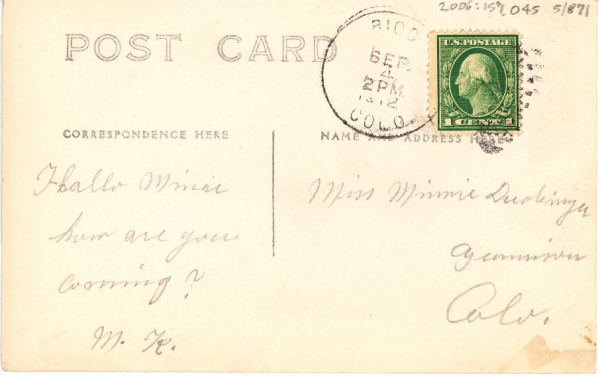 2006:157.045 5/871
POST CARD
RICO
SEP.
4
2PM
1912
COLO.
U.S. POSTAGE
1 CENT 1
CORRESPONDENCE HERE
NAME AND ADDRESS HERE
Hallo Minie
how are you
coming?
M. K.
Miss Minnie
Gunnison
Colo.